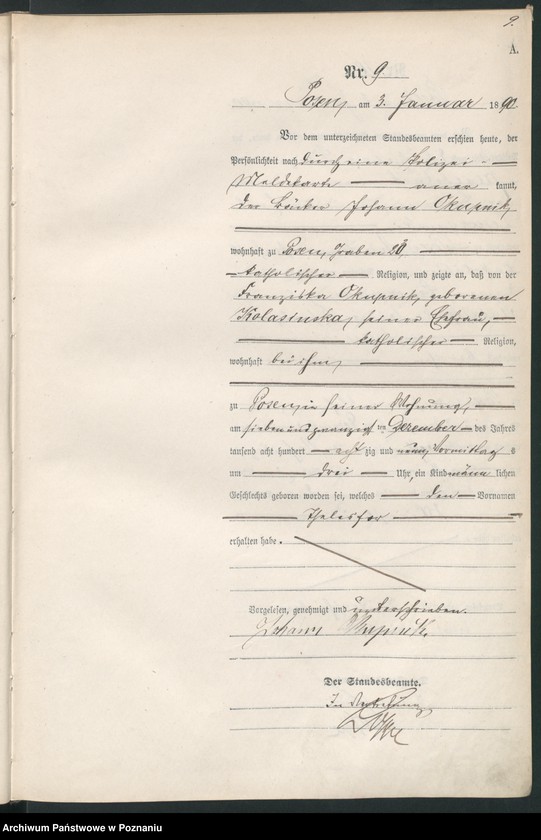 9.
A.
Nr. 9
Posen, am 3. Januar 1890
Vor dem unterzeichneten Standesbeamten erschien heute, der
Persönlichkeit nach durch eine Polizei-
Meldekarte aner kannt,
der Bäcker Johann Okupnik,
wohnhaft zu Posen, Graben 20,
katholischer Religion, und zeigte an, daß von der
Franziska Okupnik, geborenen
Kolasinska, seiner Ehefrau,
katholischer Religion,
wohnhaft bei ihm,
zu Posen, in seiner Wohnung,
am sieben und zwanzigsten Dezember des Jahres
tausend acht hundert acht zig und neun, Vormittags
um drei Uhr, ein Kind männ lichen
Geschlechts geboren worden sei, welches den Vornamen
Thelesfor
erhalten habe.
Vorgelesen, genehmigt und unterschrieben.
Johann Okupnik
Der Standesbeamte.
In Vertretung
Archiwum Państwowe w Poznaniu